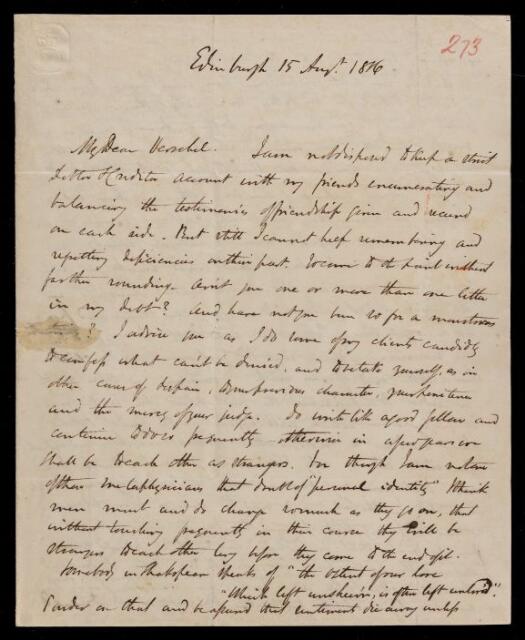 273
Edinburgh 15 Augt. 1816
My Dear Herschel. I am not disposed to keep a strict
Debtor & Creditor account with my friends enumerating and
balancing the testimonies of friendship given and received
on each side. But still I cannot help remembering and
regretting deficiencies on their part. To come to the point without
farther rounding. Ain't you one or more than one letter
in my debt? And have not you been so for a monstrous
time? I advise you as I do some of my clients candidly
to confess what can't be denied, and to betake yourself, as in
other cases of despair, to your previous character, your penitence
and the mercy of your judge. Do write like a good fellow and
continue to do so frequently otherwise in a few years we
shall be to each other as strangers. For though I am not one
of those metaphysicians that doubt of "personal identity" I think
men must and do change so much as they go on, that
without touching frequently in their course they will be
strangers to each other long before they come to the end of it.
Somebody in Shakespeare speaks of "the extent of your love
"Which left unshewn, is often left unloved".
Ponder on that and be assured that sentiments die away unless